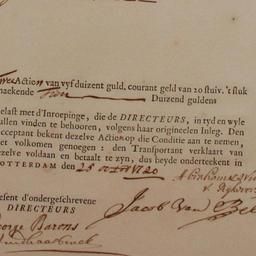 Twee Action van vyf duizent guld, courant geld van 20 stuiv. 't stuk
maekende Tien Duizend guldens
elast met d'Inroepinge, die de DIRECTEURS, in tyd en wyle
ullen vinden te behooren, volgens haar origineelen Inleg. Den
cceptant bekent dezelve Actie op die Conditie aan te nemen,
et volkomen genoegen: den Transportant verklaart van
ezelve voldaan en betaalt te zyn, dus beyde onderteekent in
OTTERDAM den 25 1720
Abraham
esent d'ondergeschrevene
DIRECTEURS
Jacob Van
George Barons